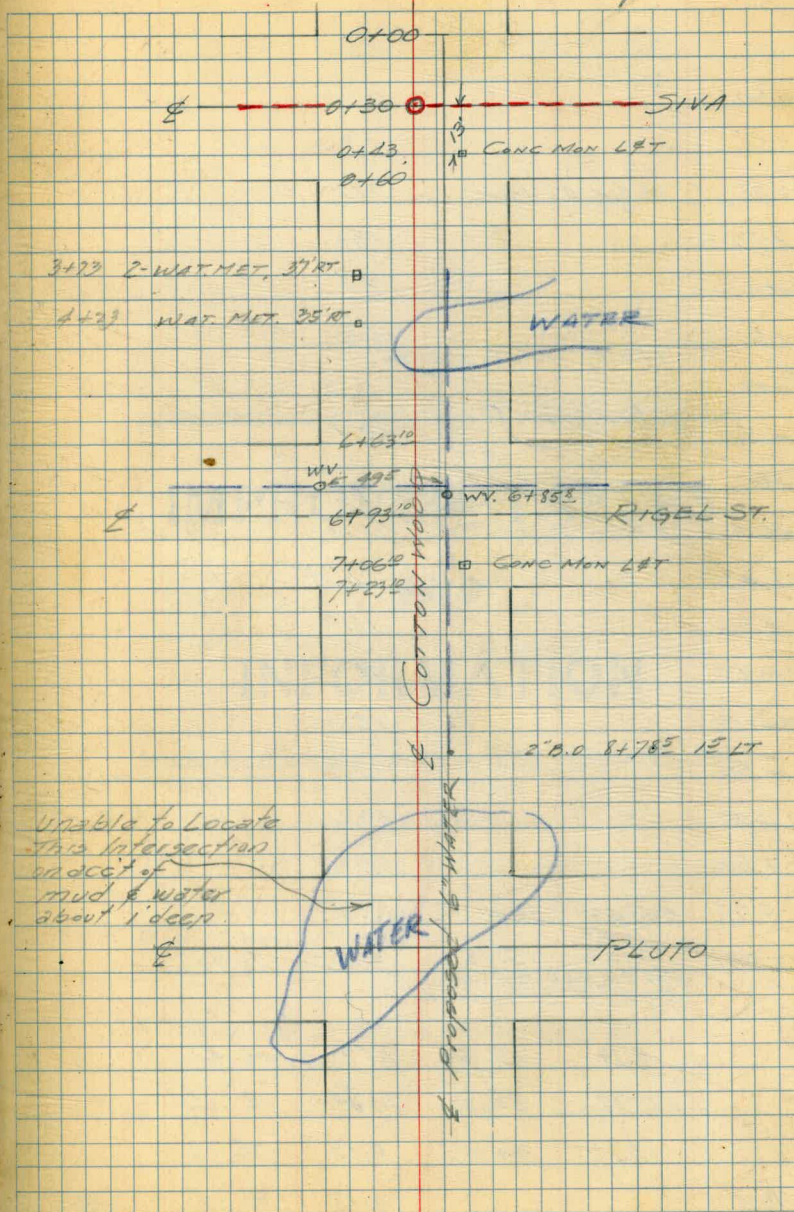 0+00
℄ 0+30 SIVA
13'
0+43 CONC MON L&T
0+60
3+73 2-WAT. MET. 37' RT
4+23 WAT. MET. 35' RT
WATER
6+63¹⁰
W.V. 49⁵
W.V. 6+85⁵
℄ 6+93¹⁰ RIGEL ST.
7+06¹⁰ CONC MON L&T
7+23¹⁰
℄ COTTONWOOD
2" B.O 8+78⁵ 1⁵ LT
Unable to Locate
This Intersection
on acc't of
mud & water
about 1' deep
WATER
℄ PLUTO
℄ Proposed 6" WATER